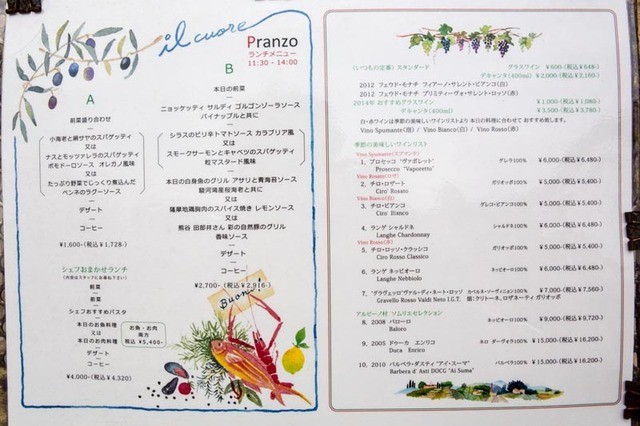 il cuore
Pranzo
ランチメニュー
11:30 - 14:00
A
前菜盛り合わせ
小海老と絹サヤのスパゲッティ
又は
ナスとモッツァレラのスパゲッティ
ポモドーロソース オレガノ風味
又は
たっぷり野菜でじっくり煮込んだ
ペンネのラグーソース
デザート
コーヒー
¥1,600-(税込¥1,728-)
シェフおまかせランチ
前菜
前菜
シェフおすすめパスタ
本日のお魚料理
又は
本日のお肉料理
お魚・お肉
両方
税込 ¥5,400-
デザート
コーヒー
¥4,000-(税込¥4,320)
B
本日の前菜
ニョッケッティ サルディ ゴルゴンゾーラソース
パイナップルと共に
シラスのピリ辛トマトソース カラブリア風
又は
スモークサーモンとキャベツのスパゲッティ
粒マスタード風味
本日の白身魚のグリル アサリと青海苔ソース
駿河湾産桜海老と共に
又は
薩摩地鶏胸肉のスパイス焼き レモンソース
又は
熊谷 田部井さん 彩の自然豚のグリル
香味ソース
デザート
コーヒー
¥2,700-(税込¥2,916-)
Buono!
(いつもの定番) スタンダード グラスワイン ¥600-(税込¥648-)
デキャンタ(400ml) ¥2,000-(税込¥2,160-)
2012 フェウド・モナチ フィアーノ・サレント・ビアンコ(白)
2012 フェウド・モナチ プリミティーヴォ・サレント・ロッソ(赤)
2014年 おすすめグラスワイン ¥1,000-(税込¥1,080-)
デキャンタ(400ml) ¥3,500-(税込¥3,780-)
白・赤ワインは季節の美味しいワインリストより 本日の料理に合わせて おすすめ致します。
Vino Spumante(泡) / Vino Bianco(白) / Vino Rosso(赤)
季節の美味しいワインリスト
Vino Spumante(スプマンテ)
1, プロセッコ 「ヴァポレット」 グレラ100% ¥6,000-(税込¥6,480-)
Prosecco "Vaporetto"
Vino Rosato(ロゼ)
2, チロ・ロザート ガリオッポ100% ¥5,000-(税込¥5,400-)
Ciro' Rosato
Vino Bianco(白)
3, チロ・ビアンコ グレコ・ビアンコ100% ¥5,000-(税込¥5,400-)
Ciro' Bianco
4, ランゲ シャルドネ シャルドネ100% ¥6,000-(税込¥6,480-)
Langhe Chardonnay
Vino Rosso(赤)
5, チロ・ロッソ・クラッシコ ガリオッポ100% ¥5,000-(税込¥5,400-)
Ciro Rosso Classico
6, ランゲ ネッビオーロ ネッビオーロ100% ¥6,000-(税込¥6,480-)
Langhe Nebbiolo
7, 「グラヴェッロ」ヴァル・ディ・ネート・ロッソ カベルネ・ソーヴィニョン100% ¥7,000-(税込¥7,560-)
Gravello Rosso Valdi Neto I.G.T.
アルビーノ村 ソムリエセレクション
8, 2008 バローロ ネッビオーロ100% ¥9,000-(税込¥9,720-)
Baloro
9, 2005 ドゥーカ エンリコ ネロ ダーヴォラ100% ¥15,000-(税込¥16,200-)
Duca Enrico
10, 2010 バルベラ・ダスティ "アイ・スーマ" バルベラ100% ¥15,000-(税込¥16,200-)
Barbera d' Asti DOCG "Ai Suma"